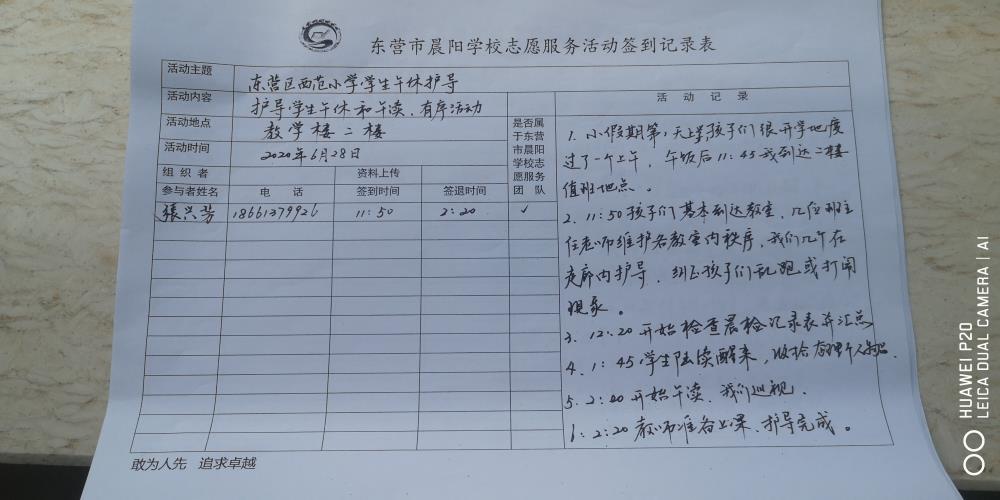 东营市晨阳学校志愿服务活动签到记录表
活动主题 东营区西范小学学生午休护导
活动内容 护导学生午休和午读,有序活动
活动地点 教学楼二楼
活动时间 2020年6月28日
组织者 资料上传
参与者姓名 电话 签到时间 签退时间
是否属
于东营
市晨阳
学校志
愿服务
团队
張兴芳 18661379926 11:50 2:20 ✓
活动记录
1. 小假期第1天上学,孩子们很开学地度
过了一个上午,午饭后11:45我到达二楼
值班地点。
2. 11:50孩子们基本到达教室,几位班主
任老师维护各教室内秩序,我们几个在
走廊内护导,纠正孩子们乱跑或打闹
现象。
3. 12:20开始检查晨检记录表并汇总
4. 1:45学生陆续醒来,收拾个人
5. 2:00开始午读,我们巡视.
6. 2:20教师准备上课,护导完成。
敢为人先 追求卓越
HUAWEI P20
LEICA DUAL CAMERA | AI